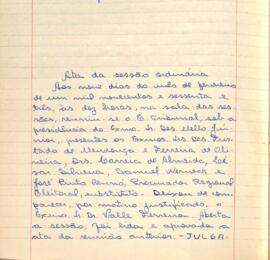 Ata da sessão ordinária
Aos nove dias do mês de fevereiro
de um mil novecentos e sessenta e
três, às dez horas, na sala das ses-
sões, reuniu-se o E. Tribunal, sob a
presidência do Exmo. Sr. Des. Mello Jú-
nior, presentes os Exmos. Srs. Des. Fur-
tado de Mendonça e Ferreira de Oli-
veira, Drs. Correia de Almeida, Cé-
sar Silveira, Samuel Werneck e
José Pinto Renó, Procurador Regional
Eleitoral, substituto. Deixou de com-
parecer, por motivo justificado, o
Exmo. Sr. Dr. Valle Ferreira. Aberta
a sessão, foi lida e aprovada a
ata da reunião anterior. - JULGA-